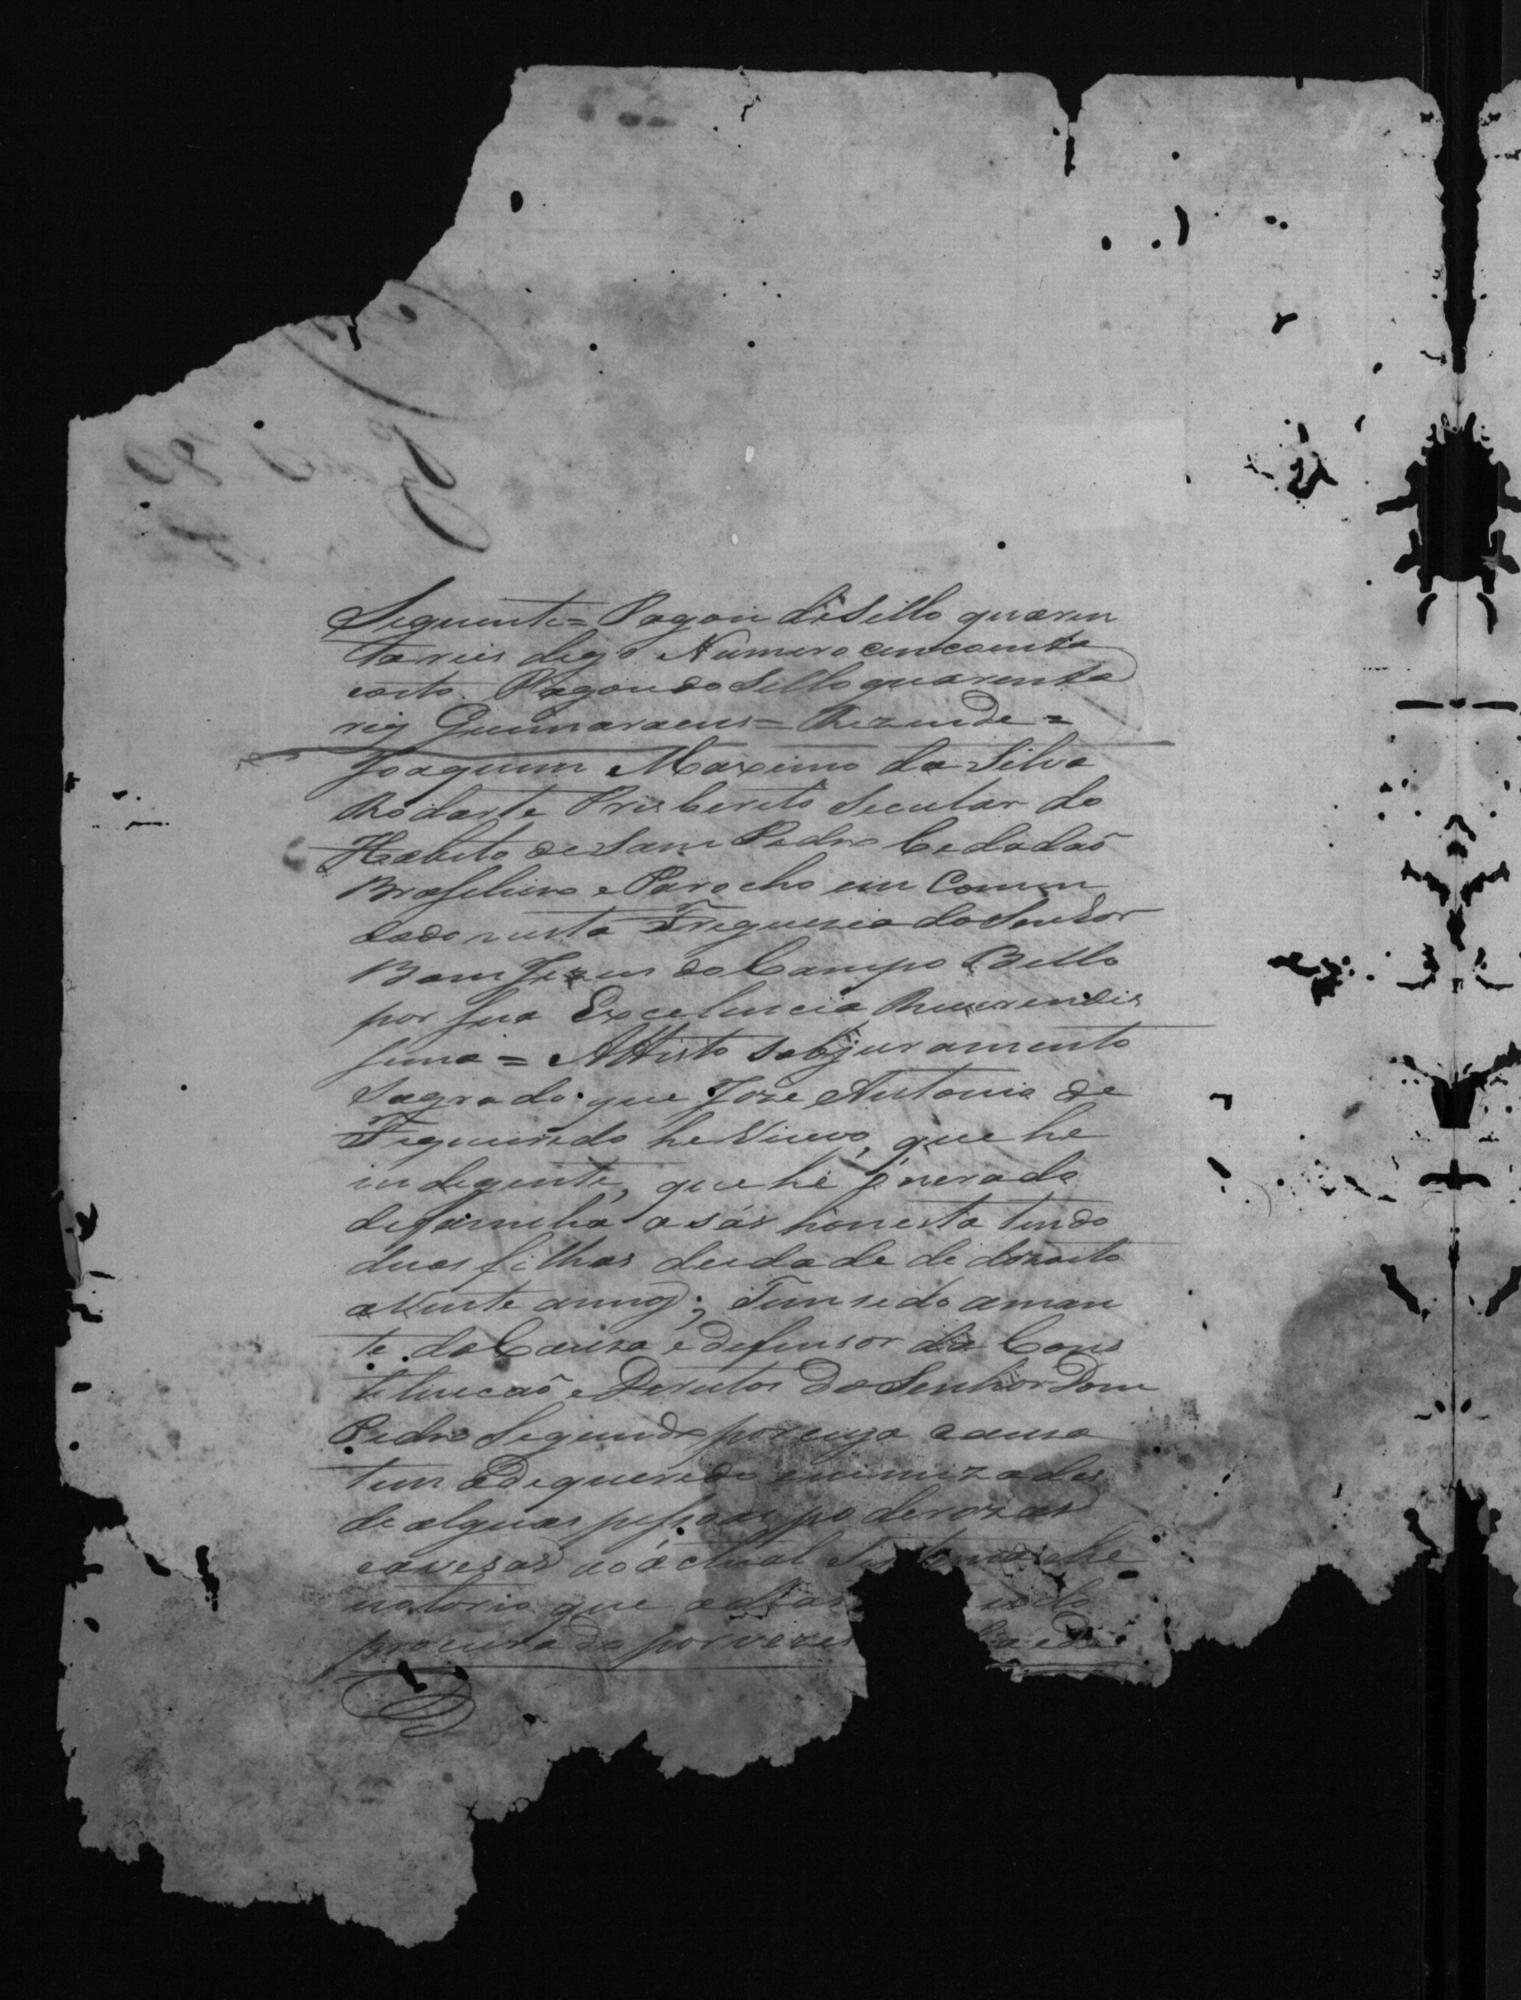 Seguinte = Pagou de Sello quaren
ta reis digo Numero cincoenta
eoito. Pagou do Sello quarenta
reis Guimaraens = Rezende =
Joaquim Maximo da Silva
Rodarte Prisberito Secular do
Habito de Sam Pedro Cedadaõ
Brasileiro e Parocho em Comen
dado nesta Freguezia do Senhor
Bom Jezus do Campo Bello
por sua Excelencia Reverendis
sima = Attesto sob juramento
Sagrado que Joze Antonio de
Figueiredo he Viuvo, que he
indegente, que he onerado
de familia asás honesta tendo
duas filhas de idade de dezoito
a Vinte annos; Tem sido aman
te da Cauza e defensor da Cons
tituicaõ e Dereitos do Senhor Dom
Pedro Segundo por cuja causa
tem adequerido enimizades
de alguas pessoas poderozas
eavesas ao actual Sistema ehe
notorio que
procurado por vezes